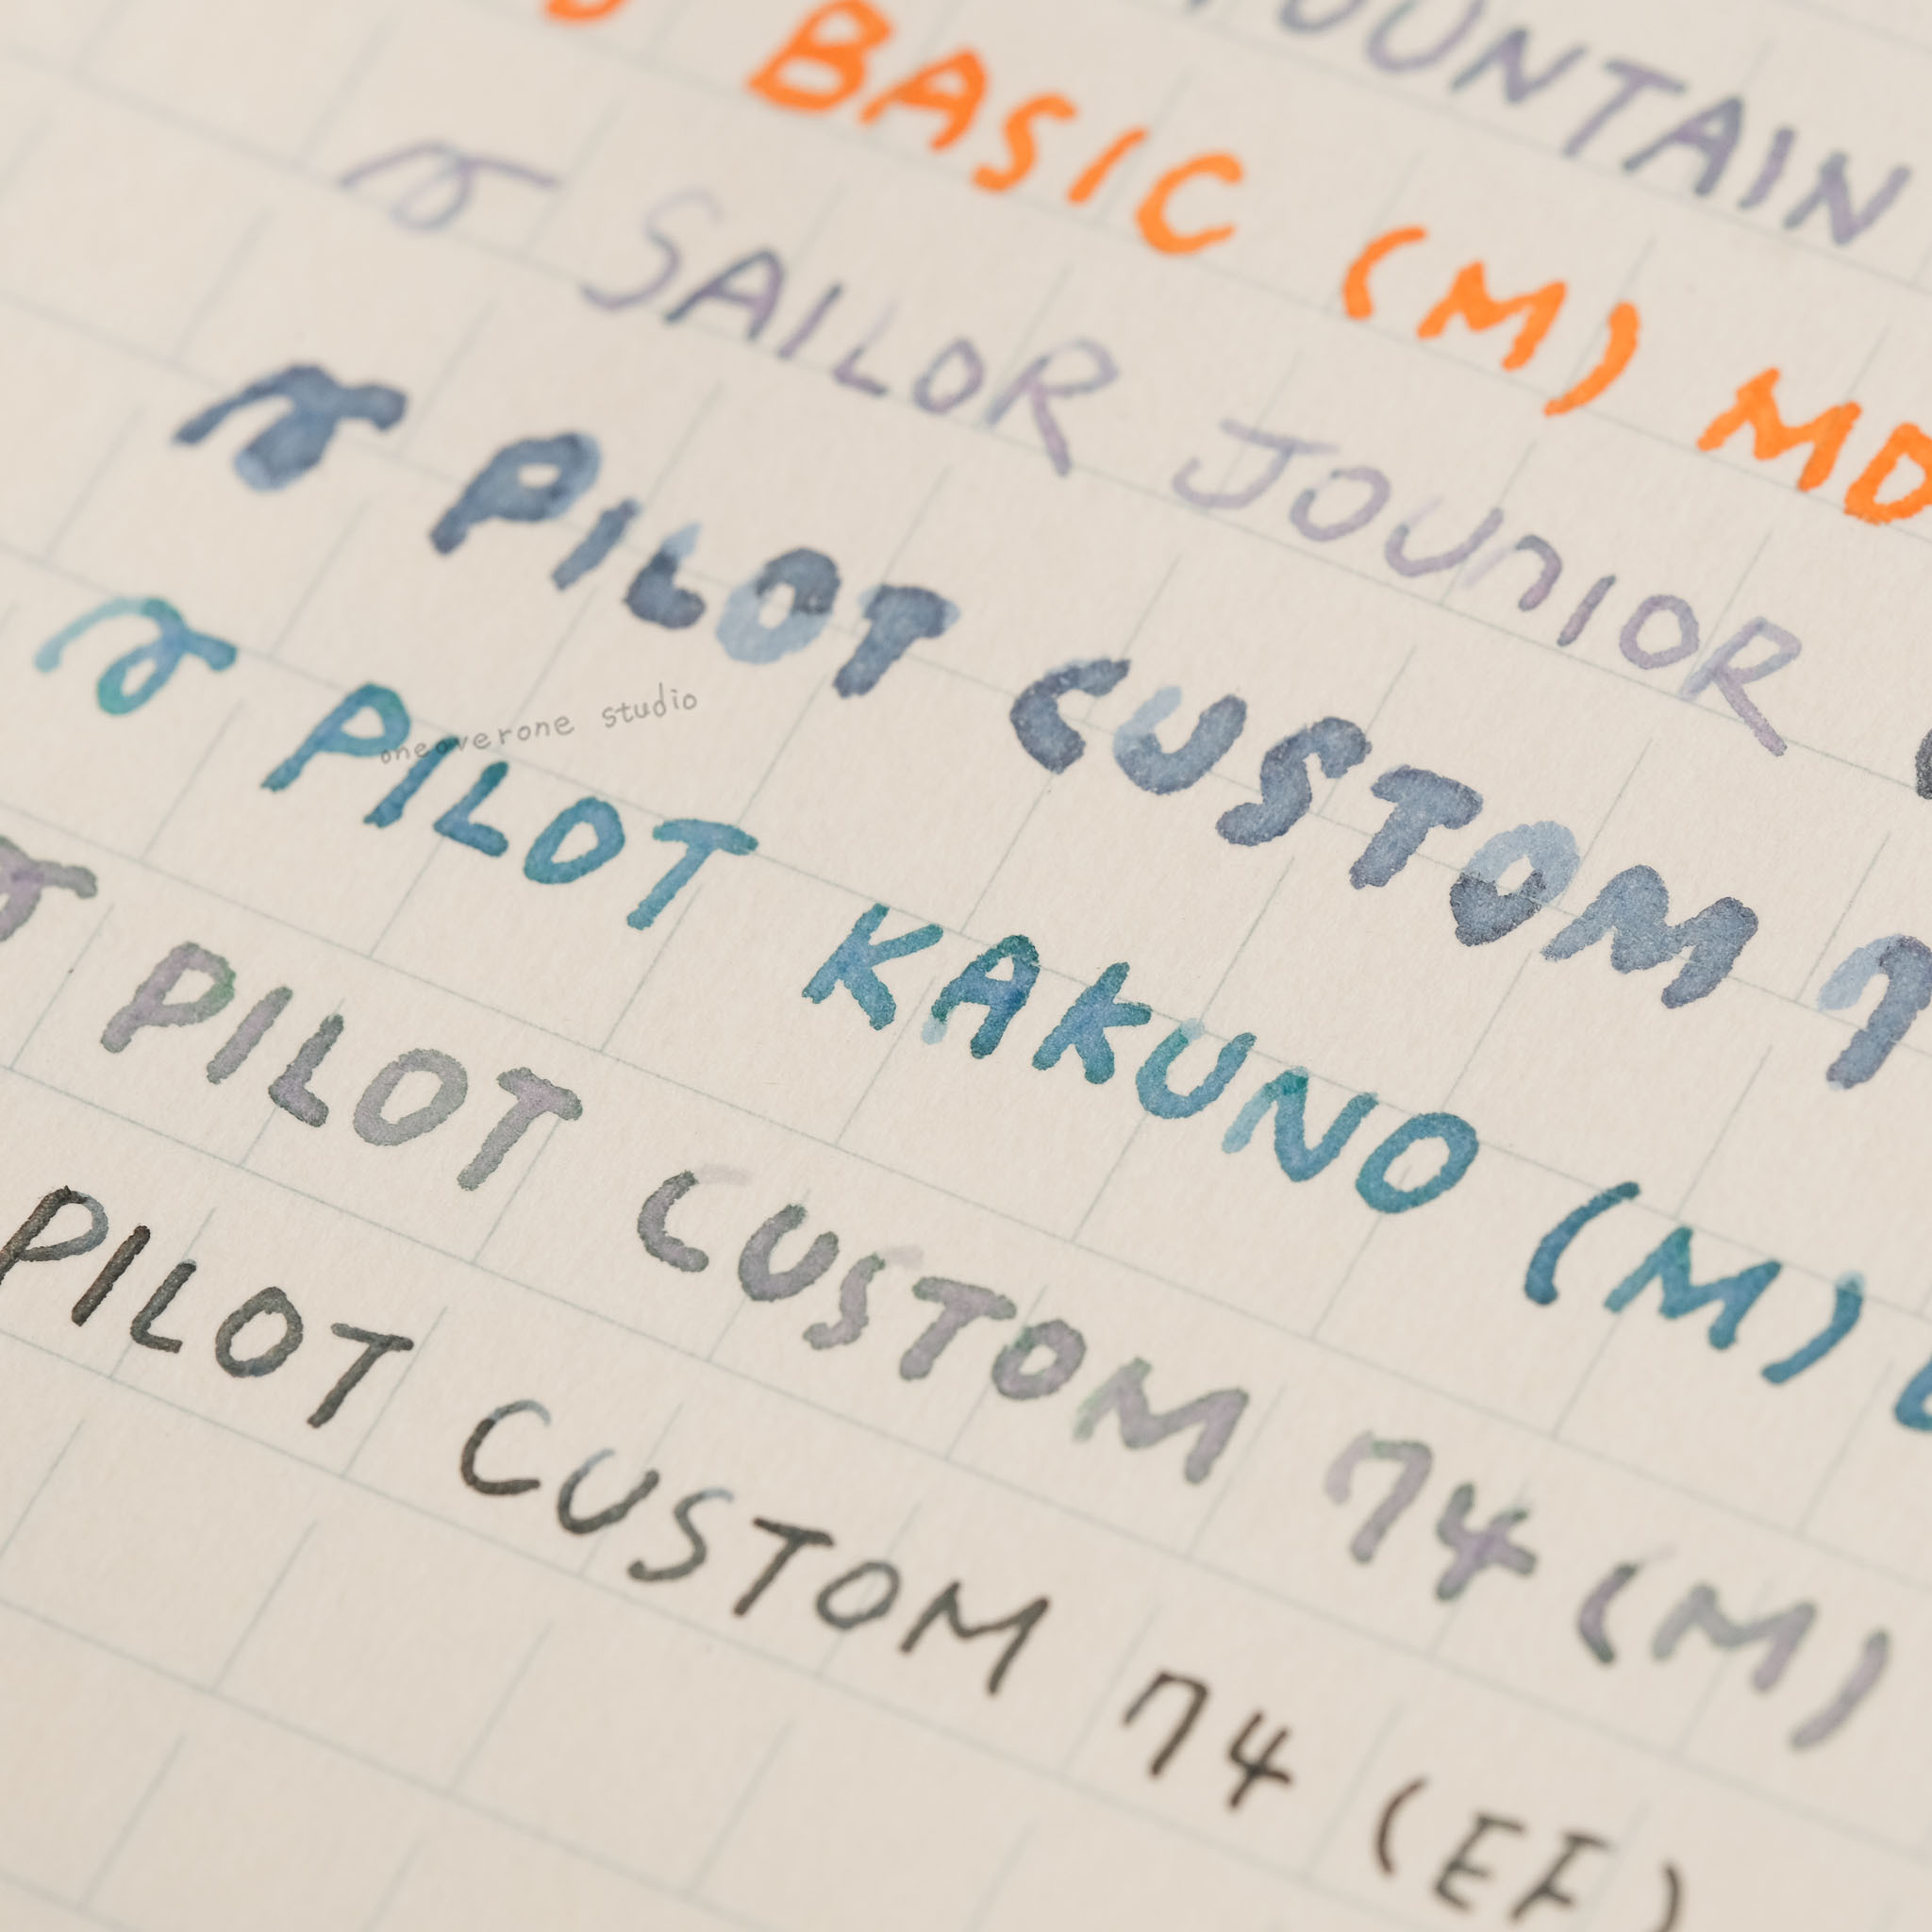 BASIC (M) MD
SAILOR JOUNIOR
PILOT CUSTOM 7
oneoverone studio
PILOT KAKUNO (M)
PILOT CUSTOM 74 (M)
PILOT CUSTOM 74 (EF)